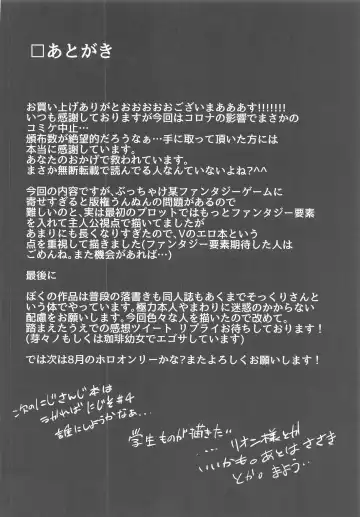 □あとがき
お買い上げありがとおおおおおございまああああす!!!!!!!
いつも感謝しておりますが今回はコロナの影響でまさかの
コミケ中止…
頒布数が絶望的だろうなぁ…手に取って頂いた方には
本当に感謝しています。
あなたのおかげで救われています。
まさか無断転載で読んでる人なんていないよね?^^
今回の内容ですが、ぶっちゃけ某ファンタジーゲームに
寄せすぎると版権うんぬんの問題があるので
難しいのと、実は最初のプロットではもっとファンタジー要素
を入れて主人公視点で描いてましたが
あまりにも長くなりすぎたので、Vのエロ本という
点を重視して描きました(ファンタジー要素期待した人は
ごめんね。また機会があれば…)
最後に
ぼくの作品は普段の落書きも同人誌もあくまでそっくりさんと
いう体でやっています。極力本人やまわりに迷惑のかからない
配慮をお願いします。今回色々な人を描いたので改めて。
踏まえたうえでの感想ツイート リプライお待ちしております!
(芽々ノもしくは珈琲幼女でエゴサしています)
では次は8月のホロオンリーかな?またよろしくお願いします!
次のにじさんじ本は
うかればにじそ#4
誰にしようかなぁ…
学生ものが描きたい
…リオン様とか
いいかも。あとはささき
とか。まよう…